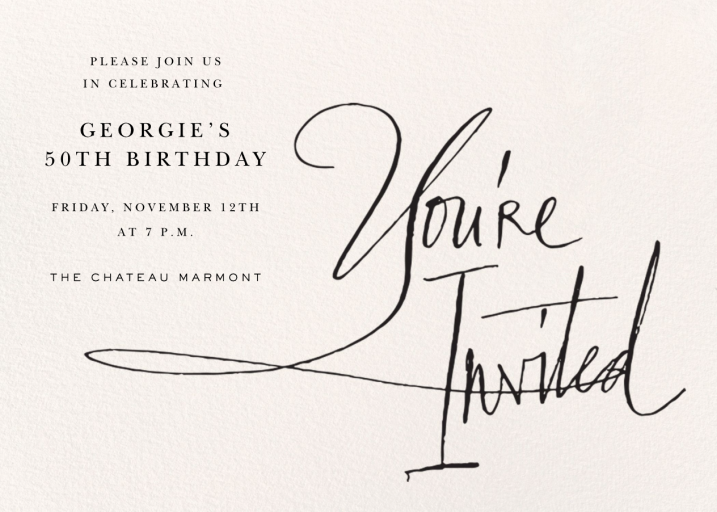 PLEASE JOIN US
IN CELEBRATING
GEORGIE'S
50TH BIRTHDAY
FRIDAY, NOVEMBER 12TH
AT 7 P.M.
THE CHATEAU MARMONT
You're
Invited